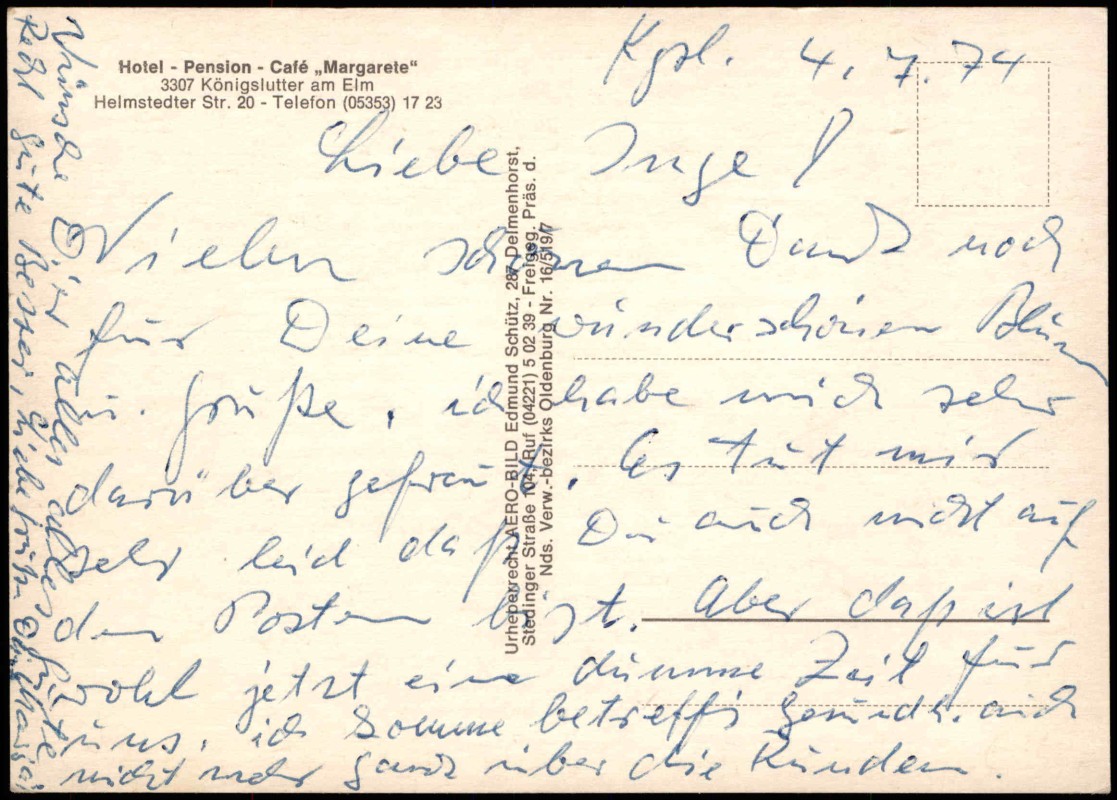 Hotel - Pension - Café „Margarete“
3307 Königslutter am Elm
Helmstedter Str. 20 - Telefon (05353) 17 23
Kgsl. 4. 7. 74
Liebe Inge!
Vielen schönen Dank noch
für Deine wunderschönen Blumen
u. Grüße, ich habe mich sehr
darüber gefreut. Es tut mir
sehr leid daß Du auch nicht auf
den Posten bist. Aber daß ist
wohl jetzt eine dumme Zeit für
uns, ich komme betreffs Gesundh. auch
nicht mehr ganz über die Runden.
Wünsche Dir alles alles Gute
Recht gute Besserung, liebe Grüße Dir
Urheberrecht AERO-BILD Edmund Schütz, 287 Delmenhorst,
Stedinger Straße 104, Ruf (04221) 5 02 39 - Freigeg. Präs. d.
Nds. Verw.-bezirks Oldenburg Nr. 16/5197